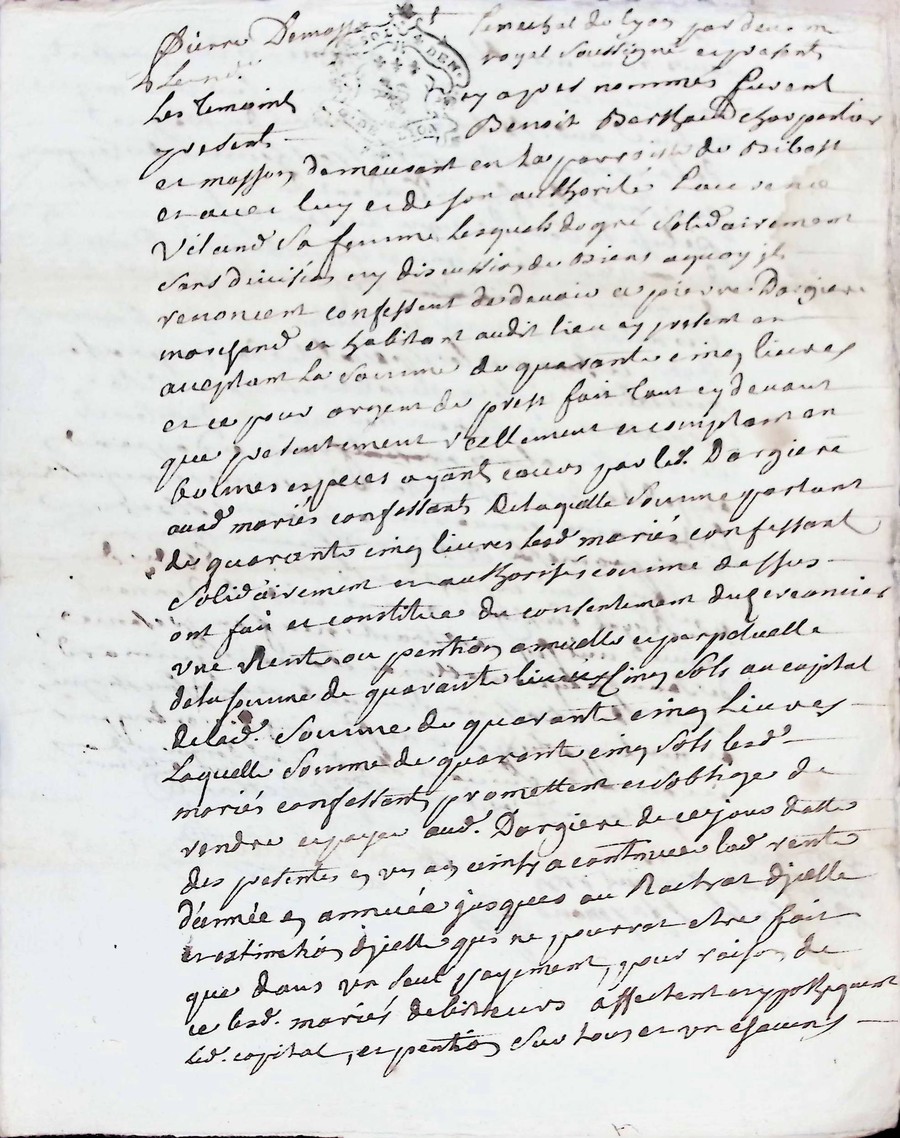 Pierre Demoss
Senechal de lyon par deva
royal soussigné et presents
Les temoins
cy apres nommés furent
presents
Benoit Barthaud charpentier
et masson demeurant en la parroisse de Ribost
et avec luy et de son authorité Laurence
Vilaud sa femme lesquels de gré solidairement
sans division ny discussion de biens a quoy ils
renoncent confessent de devoir a pierre Dargiere
marchand et habitant audit lieu cy present et
acceptant la somme de quarante cinq livres
et ce pour argent de prest fait tant cy devant
que presentement reellement et comptant en
bonnes especes ayant cours par led. Dargiere
aud. mariés confessants De laquelle somme partant
de quarante cinq livres lesd. mariés confessant
solidairement et authorisés comme dessus
ont fait et constitué du consentement du creancier
une Rente ou pention annuelle et perpetuelle
de la somme de quarante Cinq sols au capital
de lad. somme de quarante cinq livres
Laquelle somme de quarante cinq sols lesd.
mariés confessants promettent et s'oblige de
rendre et payer aud. Dargiere de ce jour datte
des presentes en un an et continuer lad. rente
d'année en année jusques au Rachat d'jcelle
et extinction d'jcelle qui ne pourrat etre fait
que dans un seul payement, pour raison de
ce lesd. mariés debitteurs affectent et ypothequent
led. capital, et pention sur tous et un chacuns